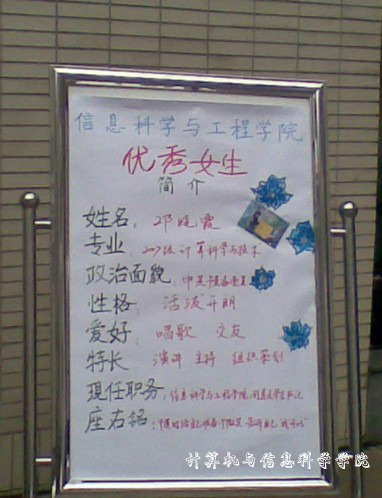 信息科学与工程学院
优秀女生
简介
姓名：邓晓霞
专业：2007级计算科学与技术
政治面貌：中共预备党员
性格：活泼开朗
爱好：唱歌 交友
特长：演讲 主持 组织策划
现任职务：信息科学与工程学院团总支学生书记
座右铭：
计算机与信息科学学院